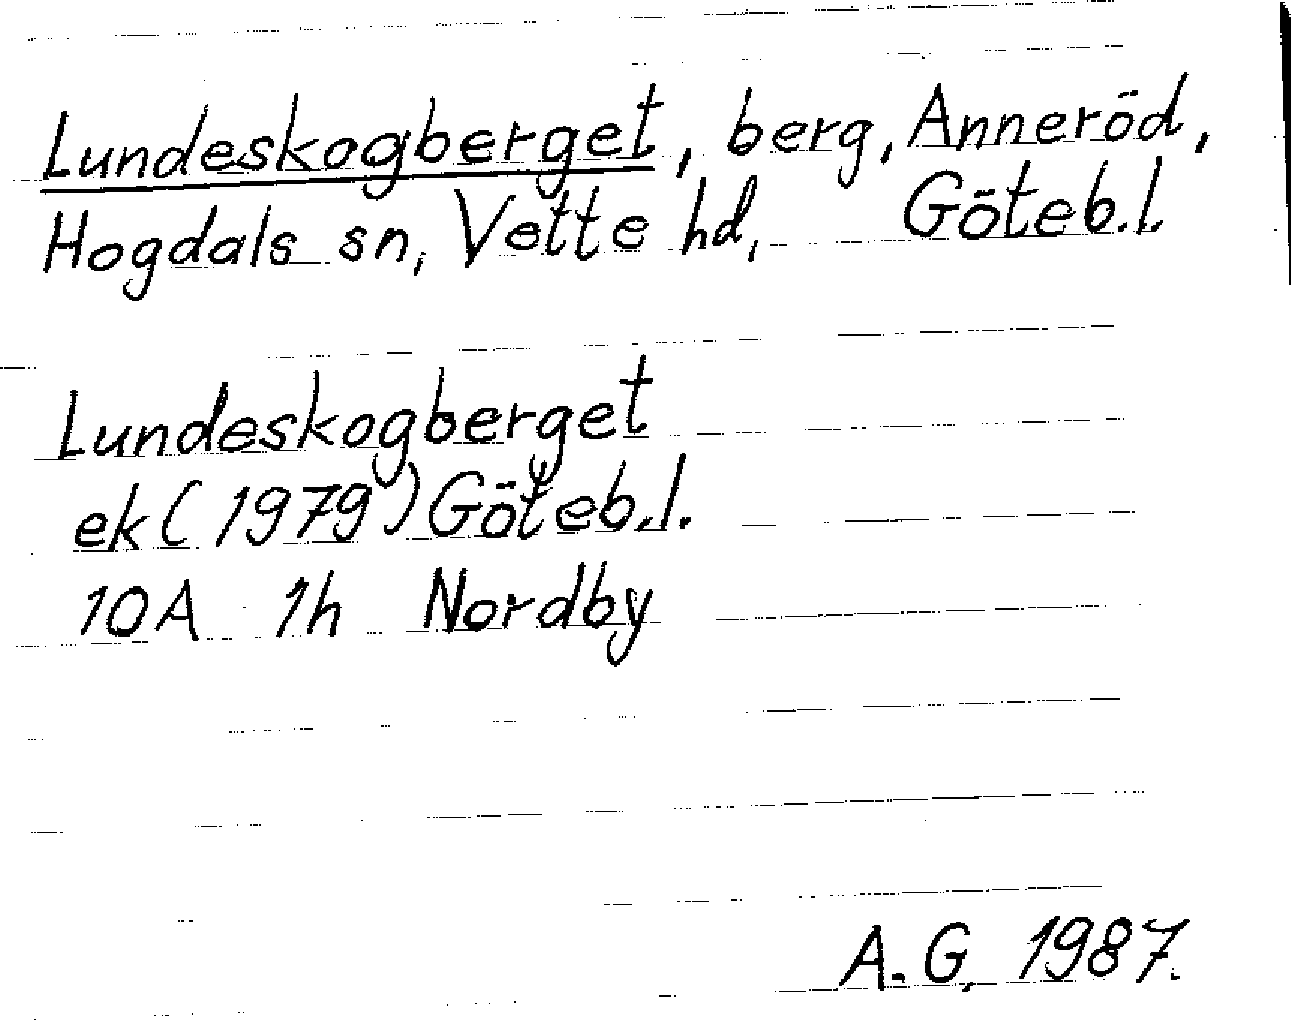 Lundeskogberget, berg, Anneröd,
Hogdals sn, Vette hd, Göteb.l.
Lundeskogberget
ek (1979) Göteb.l.
10A 1h Nordby
A.G. 1987.